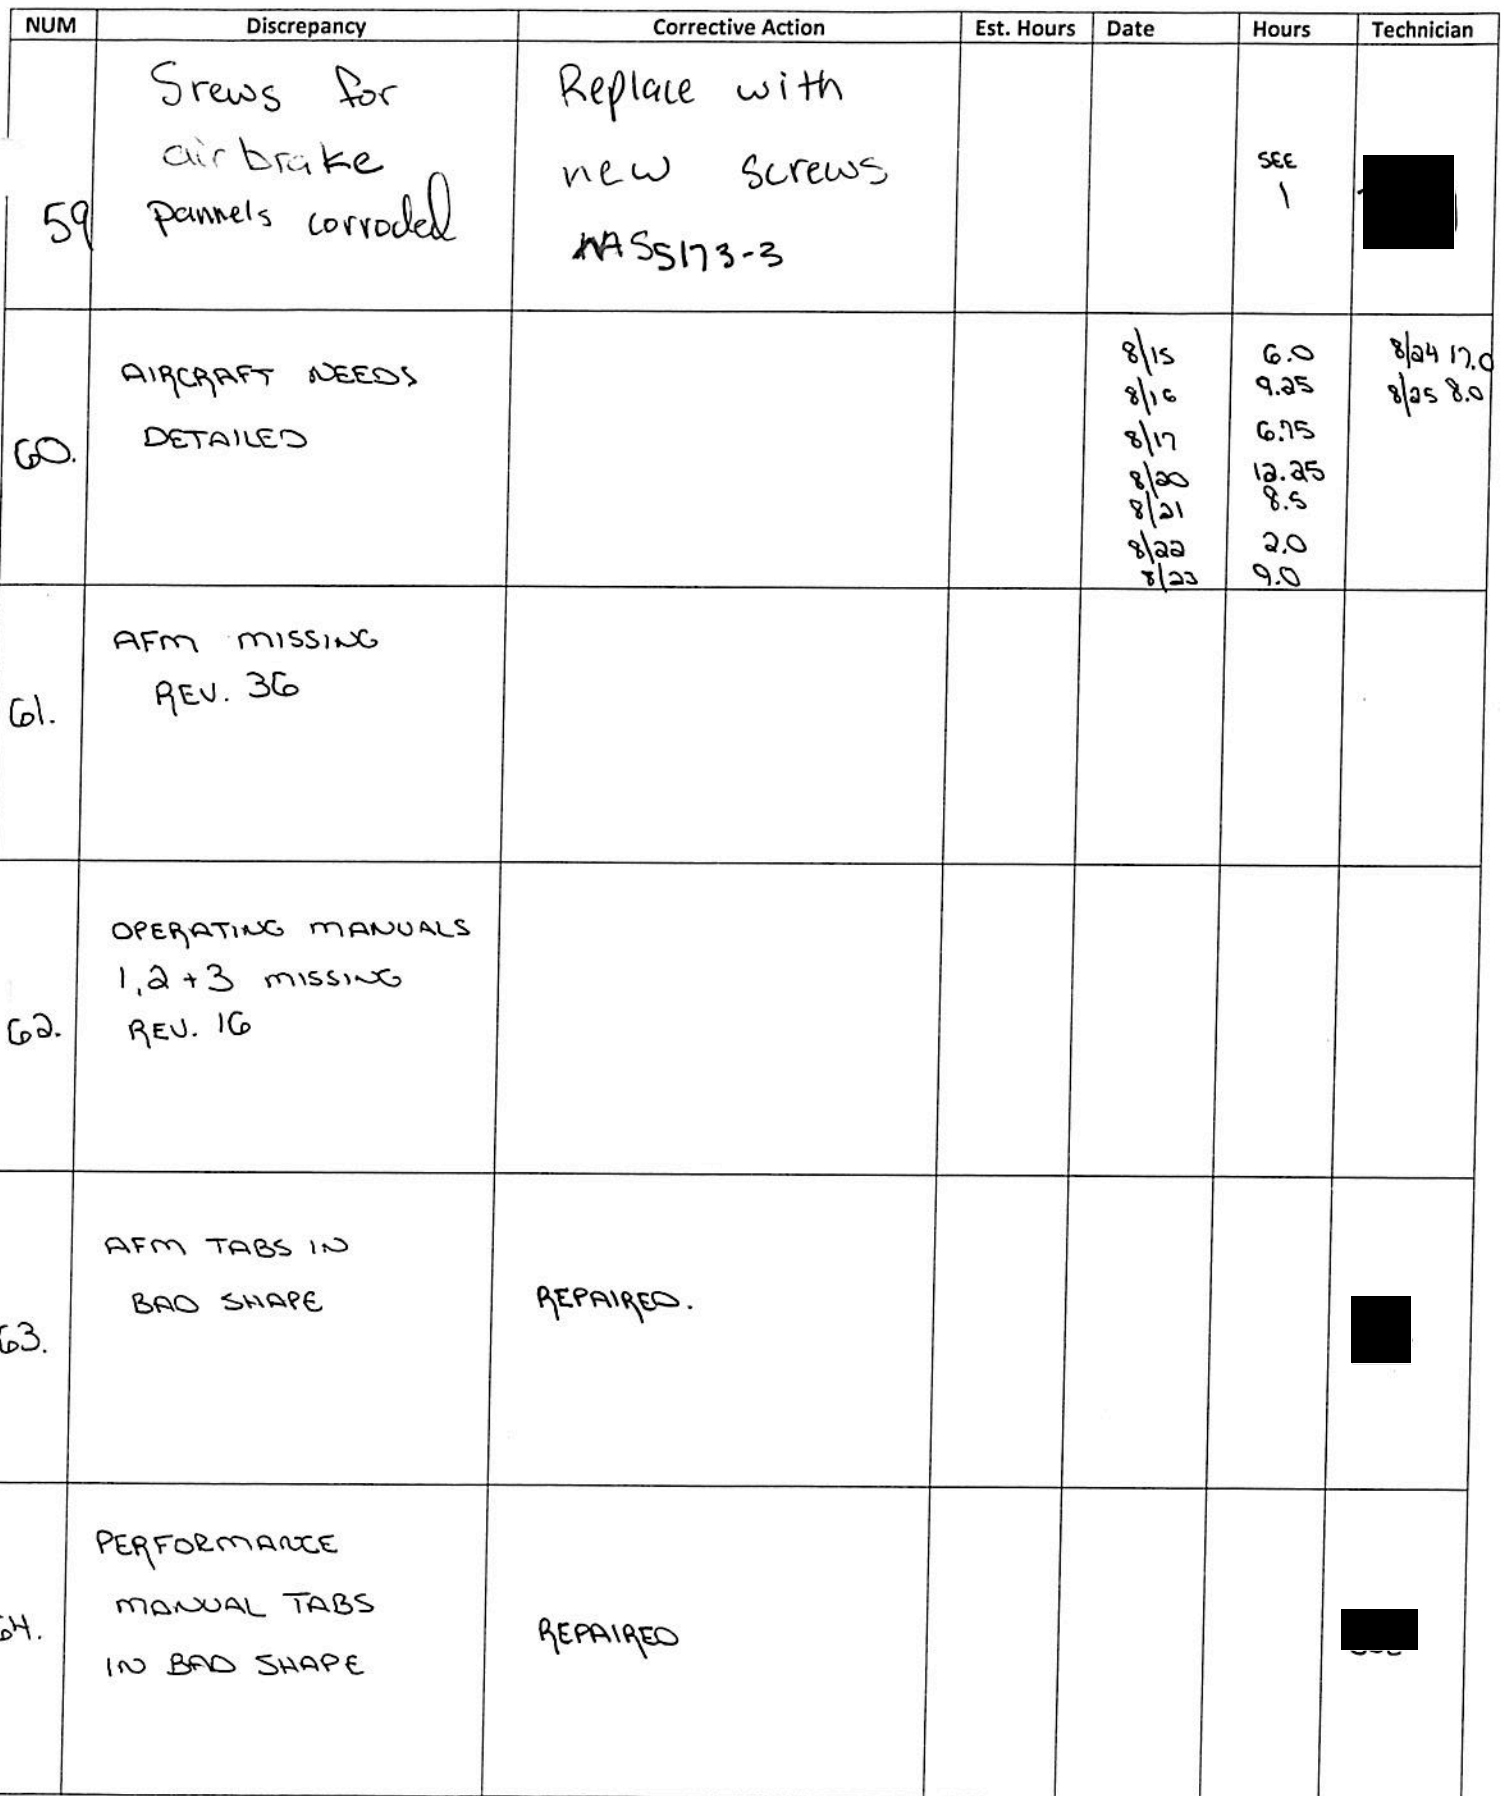 NUM Discrepancy Corrective Action Est. Hours Date Hours Technician
59
Srews for
airbrake
pannels corroded
Replace with
new screws
NAS5173-3
SEE
1
60.
AIRCRAFT NEEDS
DETAILED
8/15 6.0
8/16 9.25
8/17 6.75
8/20 12.25
8/21 8.5
8/22 2.0
8/23 9.0
8/24 17.0
8/25 8.0
61.
AFM MISSING
REV. 36
62.
OPERATING MANUALS
1,2 + 3 MISSING
REV. 16
63.
AFM TABS IN
BAD SHAPE
REPAIRED.
64.
PERFORMANCE
MANUAL TABS
IN BAD SHAPE
REPAIRED